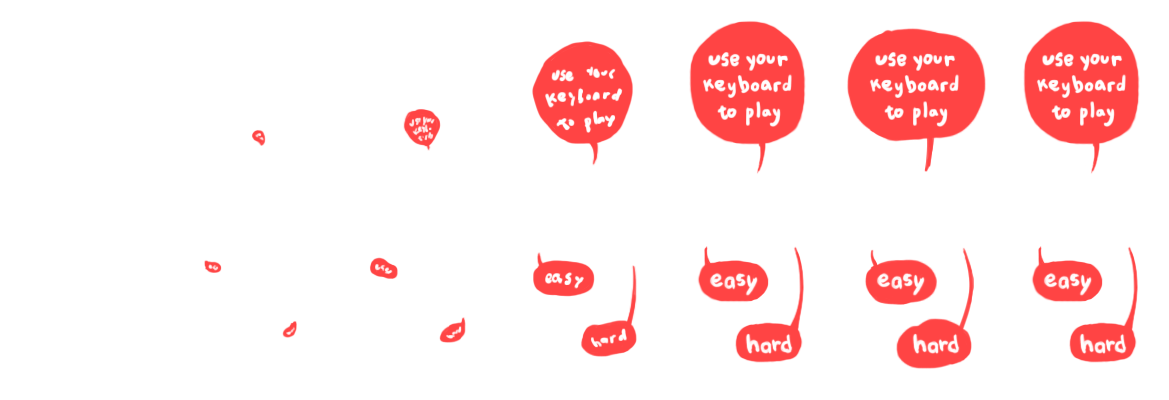 use your
keyboard
to play
use your
keyboard
to play
use your
keyboard
to play
use your
keyboard
to play
easy
easy
easy
easy
hard
hard
hard
hard